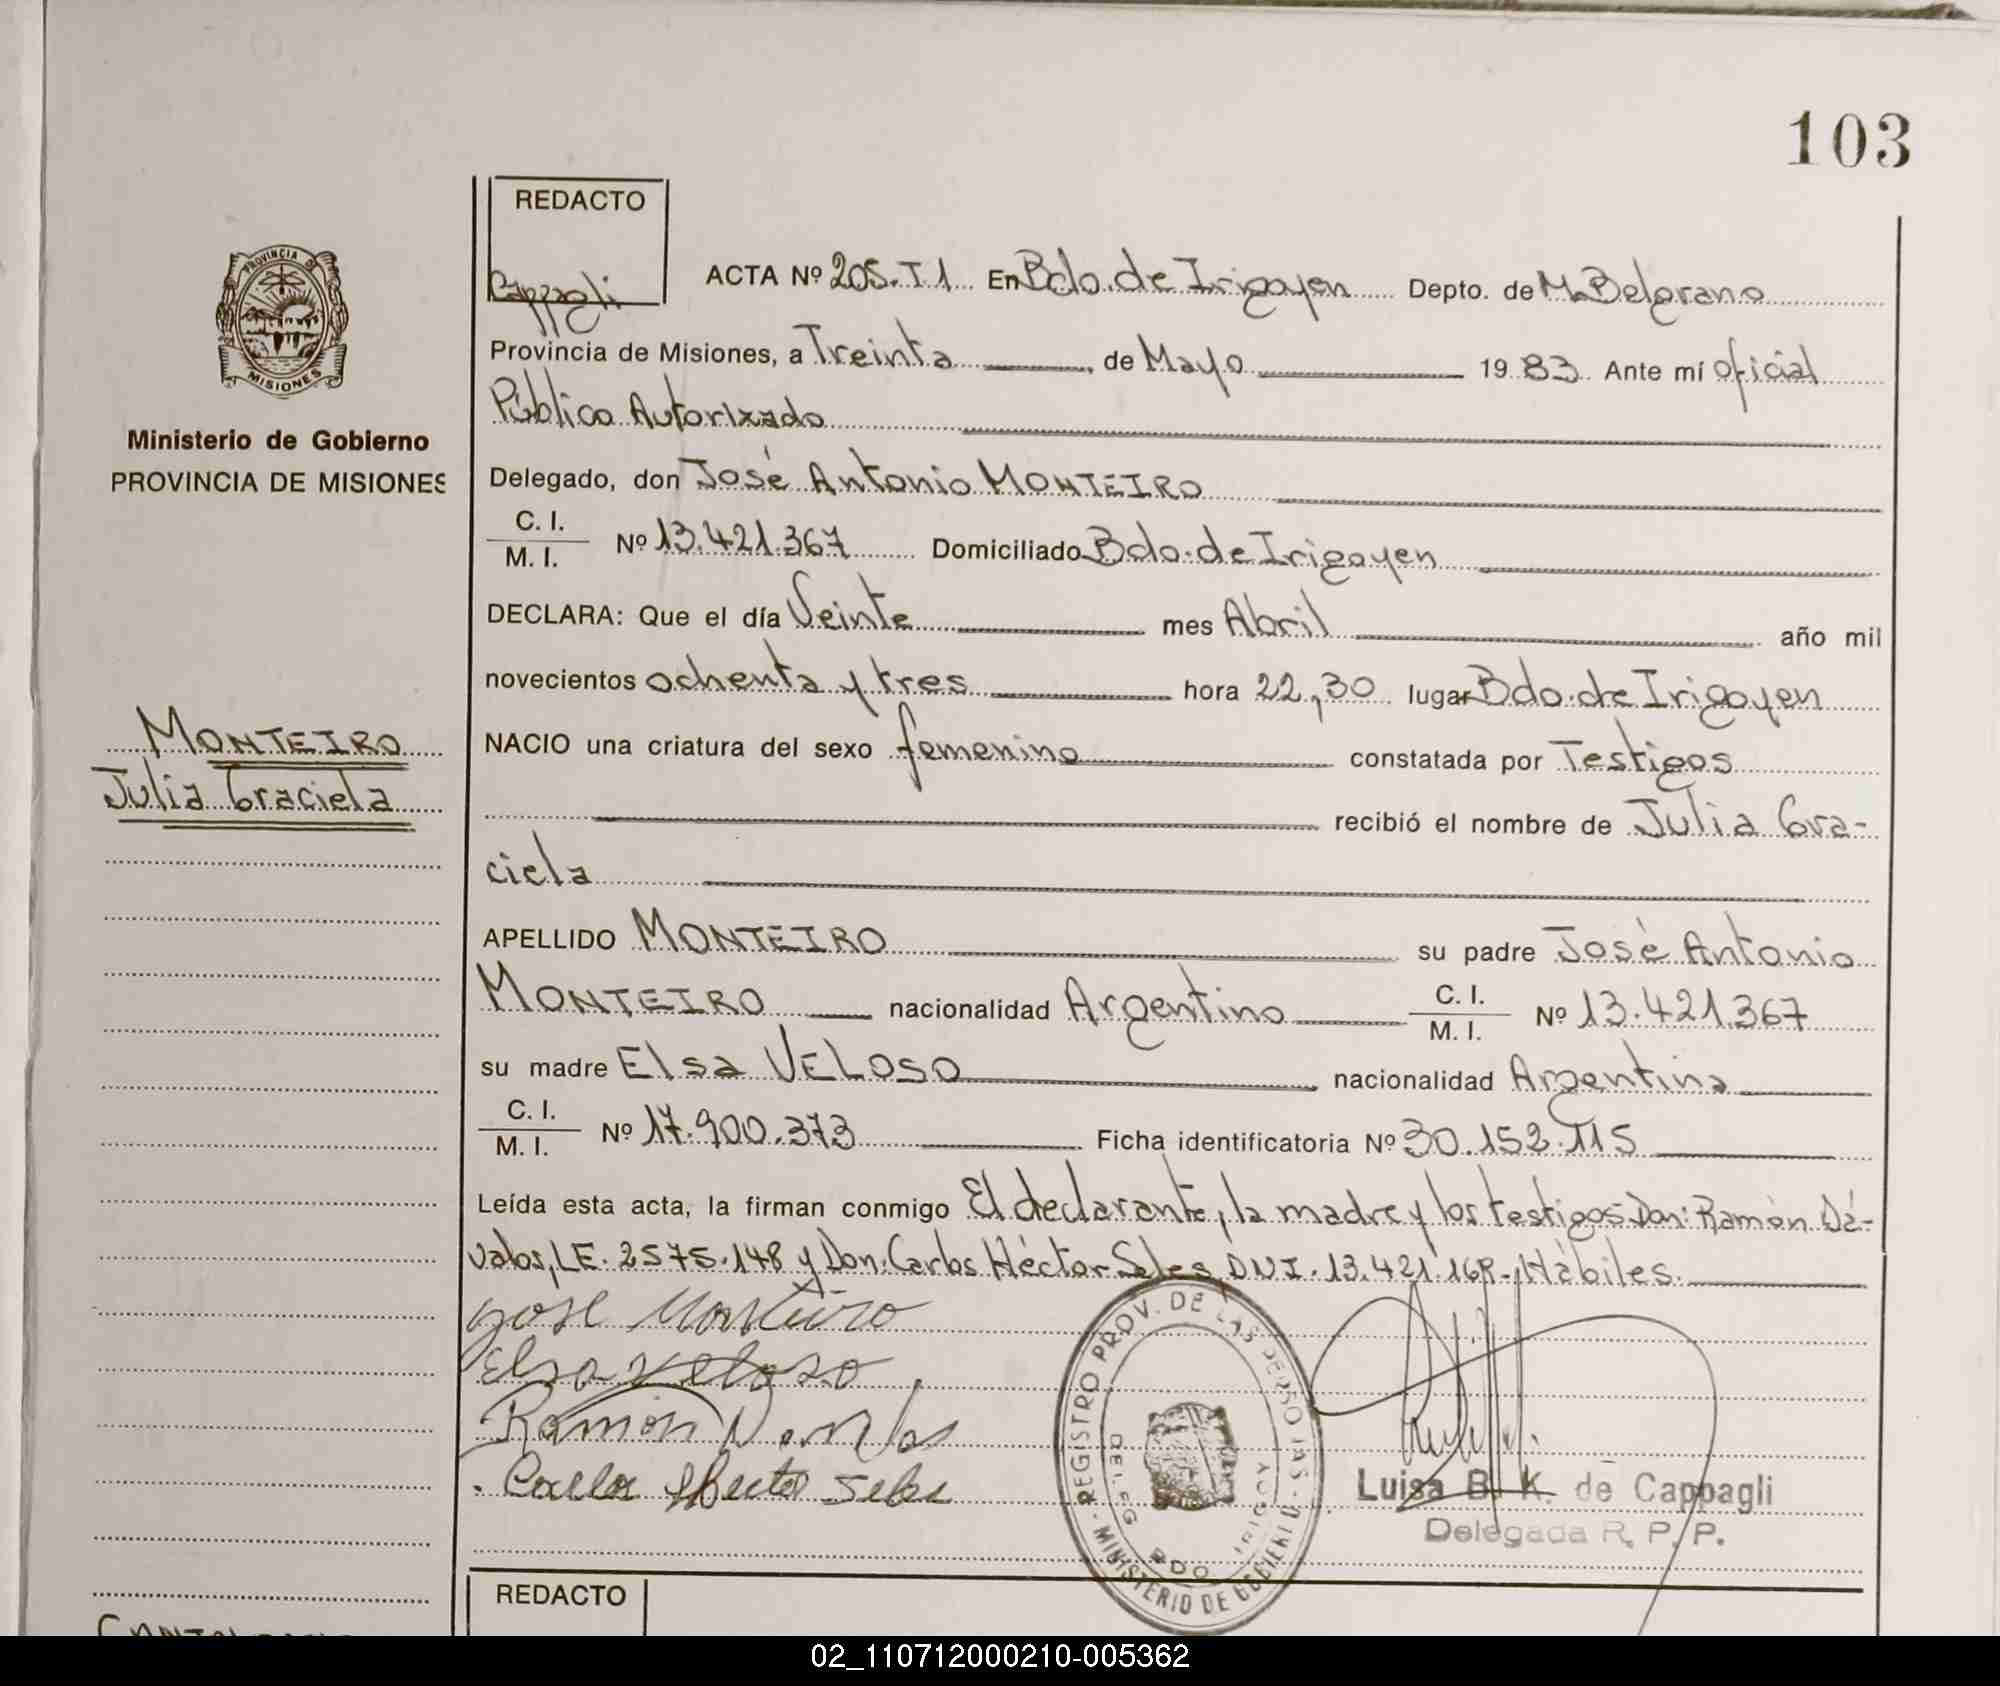 103
REDACTO
Cappagli
ACTA Nº 205.T1 En Bdo. de Irigoyen Depto. de M. Belgrano
Provincia de Misiones, a Treinta de Mayo 19 83 Ante mí oficial
Público Autorizado
Delegado, don José Antonio MONTEIRO
C. I.
M. I. Nº 13.421.367 Domiciliado Bdo. de Irigoyen
DECLARA: Que el día Veinte mes Abril año mil
novecientos ochenta y tres hora 22,30 lugar Bdo. de Irigoyen
NACIO una criatura del sexo femenino constatada por Testigos
recibió el nombre de Julia Gra-
ciela
APELLIDO MONTEIRO su padre José Antonio
MONTEIRO nacionalidad Argentino C. I. M. I. Nº 13.421.367
su madre Elsa VELOSO nacionalidad Argentina
C. I.
M. I. Nº 17.900.373 Ficha identificatoria Nº 30.152.115
Leída esta acta, la firman conmigo El declarante, la madre y los testigos Don: Ramón Dá-
valos, LE. 2575.148 y Don: Carlos Héctor Seles DNI. 13.421.168-, Hábiles.
José Monteiro
Elsa Veloso
Ramón
Carlos Hector Seles
REGISTRO PROV. DE LAS PERSONAS - MINISTERIO DE GOBIERNO
DELEG. BDO. IRIGOY
Luisa B. K. de Cappagli
Delegada R. P. P.
REDACTO
PROVINCIA DE
MISIONES
Ministerio de Gobierno
PROVINCIA DE MISIONES
MONTEIRO
Julia Graciela
02_110712000210-005362